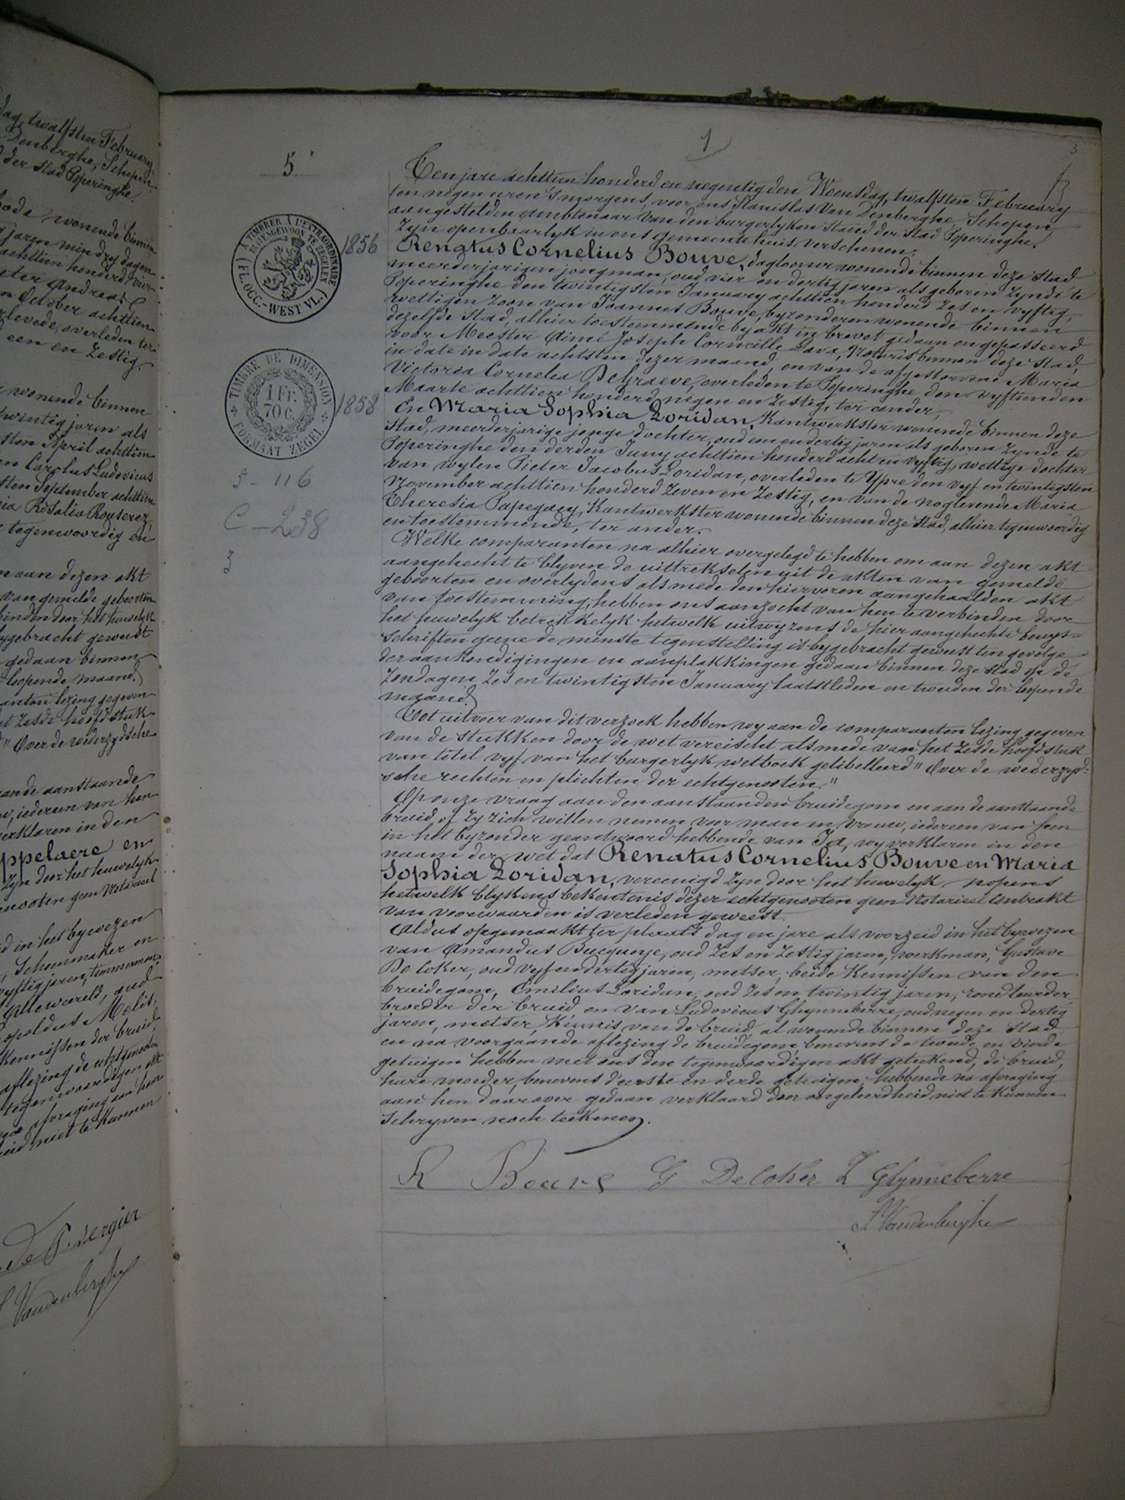 dag, twalfsten February
Denberghe, Schepen
der stad Poperinghe
wonende binnen
jaren min dry dagen
achttien honderd
October achttien
overleden te
een en zestig
wonende binnen
twintig jaren als
April achttien
Carolus Ludovicus
September achttien
Rosalia
tegenwoordig en
aan dezen akt
van gemelde geboorten
door het huwelyk
bygebracht geweest
gedaan binnen
loopende maand
lezing gegeven
zesde hoofdstuk
"Over de wederzydsche
aan de aanstaande
iedereen van hen
verklaren in den
en
zyn door het huwelyk
geen Notarieel
in het bywezen
Schoenmaker en
vyftig jaren, timmerman
oud
Leopoldus Melis,
kennissen der bruid
aflezing de
tegenwoordigen akt
afvraging aan hen
niet te kunnen
De Vergier
Vandenberghe
1
3
13
5.
À TIMBRER À L'EXTRAORDINAIRE
BUITENGEWOON TE ZEGELEN
(FL. OCC.-WEST VL.)
1856
TIMBRE DE DIMENSION
1 Fr.
70 c.
FORMAAT ZEGEL
1858
3 - 116
C - 238
3
Ten jare achttien honderd en negentig den Woensdag, twalfsten February
ten negen uren 's morgens, voor ons Stanislas Van Denberghe, Schepen,
aangestelden Ambtenaar van den burgerlyken stand der stad Poperinghe,
zyn openbaarlyk in ons gemeentehuis verschenen:
Renatus Cornelius Bouve, daglooner wonende binnen deze stad
meerderjarigen jongman, oud vier en dertig jaren als geboren zynde te
Poperinghe den twintigsten January achttien honderd zes en vyftig,
wettigen zoon van Joannes Bouve, byzonderen wonende binnen
dezelfde stad, alhier toestemmende by akt in brevet gedaan en gepasseerd
voor Meester Aimé Joseph Cornille Lava, Notaris binnen deze stad,
in date in date achtsten dezer maand, en van de afgestorvene Maria
Victoria Cornelia DeGraeve, overleden te Poperinghe den vyftienden
Maarte achttien honderd negen en zestig, ter eender,
En Maria Sophia Loridan, Kantwerkster wonende binnen deze
stad, meerderjarige jonge dochter, oud een en dertig jaren als geboren zynde te
Poperinghe den derden Juny achttien honderd acht en vyftig, wettige dochter
van wylen Pieter Jacobus Loridan, overleden te Ypre den vyf en twintigsten
November achttien honderd zeven en zestig, en van de noglevende Maria
Theresia Papegaey, Kantwerkster wonende binnen deze stad, alhier tegenwoordig
en toestemmende, ter ander.
Welke comparanten na alhier overgelegd te hebben om aan dezen akt
aangehecht te blyven de uittrekselen uit de akten van gemelde
geboorten en overlydens alsmede den hiervoren aangehaalden akt
van toestemming, hebben ons aanzocht van hen te verbinden door
het huwelyk betrekkelyk hetwelk uitwyzens de hier aangehechte bewys=
schriften geene de minste tegenstelling is bygebracht geweest ten gevolge
der aankondigingen en aanplakkingen gedaan binnen deze stad op de
zondagen zes en twintigsten January laatstleden en tweeden der loopende
maand.
Tot uitvoer van dit verzoek hebben wy aan de comparanten lezing gegeven
van de stukken door de wet vereischt alsmede van het zesde hoofdstuk
van titel vyf van het burgerlyk wetboek getibelleerd "Over de wederzyd=
sche rechten en plichten der echtgenooten."
Op onze vraag aan den aanstaanden bruidegom en aan de aanstaande
bruid of zy zich willen nemen voor man en vrouw, iedereen van hen
in het byzonder geantwoord hebbende van Ja, wy verklaren in den
naam der wet dat Renatus Cornelius Bouve en Maria
Sophia Loridan, vereenigd zyn door het huwelyk nopens
hetwelk blykens bekentenis dezer echtgenooten geen Notarieel contrakt
van voorwaarden is verleden geweest.
Aldus opgemaakt ter plaats dag en jare als voorzeid in het bywezen
van Amandus Bucquoye, oud zes en zestig jaren, werkman, Gustave
DeCoker, oud vyf en dertig jaren, metser, beide kennissen van den
bruidegom, Emilius Loridan, oud zes en twintig jaren, rondleurder,
broeder der bruid en van Ludovicus Ghynneberre, oud negen en dertig
jaren, metser, kennis van de bruid, al wonende binnen deze stad
en na voorgaande aflezing de bruidegom benevens de tweede en vierde
getuigen hebben met ons den tegenwoordigen akt geteekend, de bruid,
hare moeder benevens d'eerste en derde getuigen hebbende na afvraging
aan hen daarover gedaan verklaard door ongeleerdheid niet te kunnen
schryven noch teekenen.
R Bouve G DeCoker L Ghynneberre
S. Vandenberghe